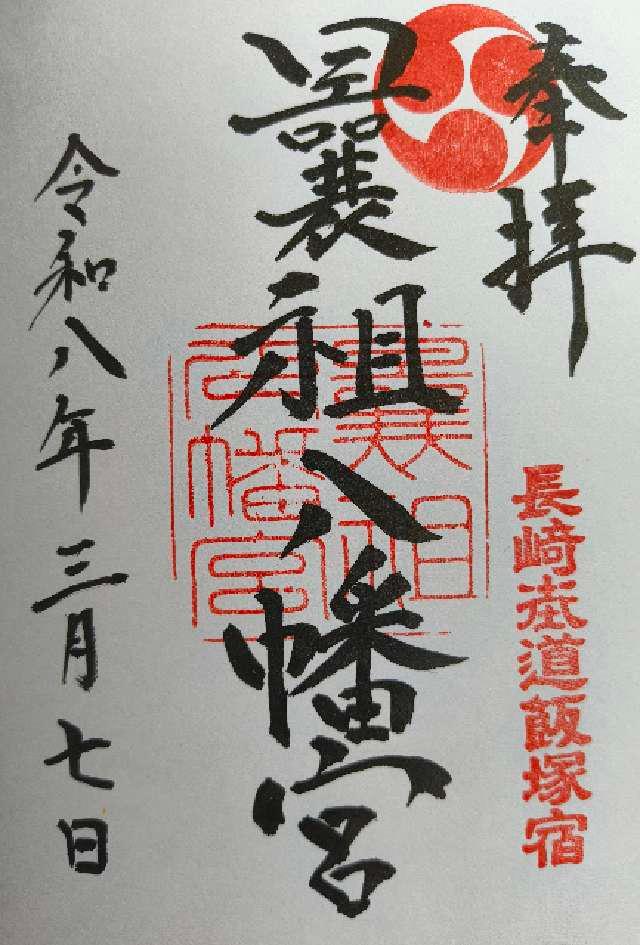 奉拝
長崎街道飯塚宿
曩祖八幡宮
曩祖八幡宮
令和八年三月七日